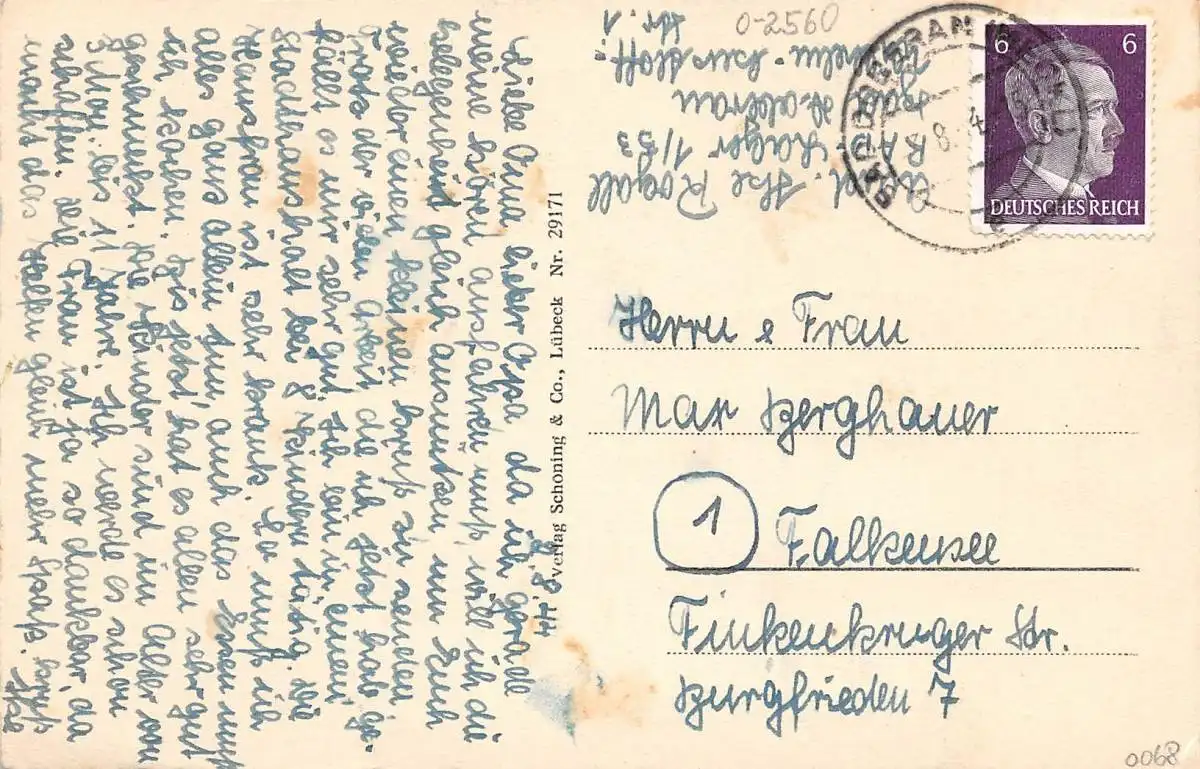 8.8.44
Liebe Oma lieber Opa da ich gerade
meine Eltern anschreiben muß, will ich die
Gelegenheit gleich ausnutzen um Euch
wieder einen kleinen Gruß zu senden.
Trotz der vielen Arbeit die ich jetzt habe ge-
fällt es mir sehr gut. Ich bin in einem
Stadthaushalt bei 8 Kindern tätig. Die
Hausfrau ist sehr krank. So muß ich
alles ganz allein tun, auch das Essen muß
ich kochen. Bis jetzt hat es allen sehr gut
geschmeckt. Die Kinder sind im Alter von
3 Mon. bis 11 Jahre. Ich werde es schon
schaffen. Die Frau ist ja so dankbar, da
macht das Helfen gleich mehr Spaß. Gruß
Ilse
Verlag Schöning & Co., Lübeck Nr. 29171
0-2560
Ilse Rogall
Lager 1/53
Str. 1
BAD DOBERAN
8. 4
6 6
DEUTSCHES REICH
Herrn & Frau
Max Berghauer
1
Falkensee
Finkenkruger Str.
Burgfrieden 7
0068